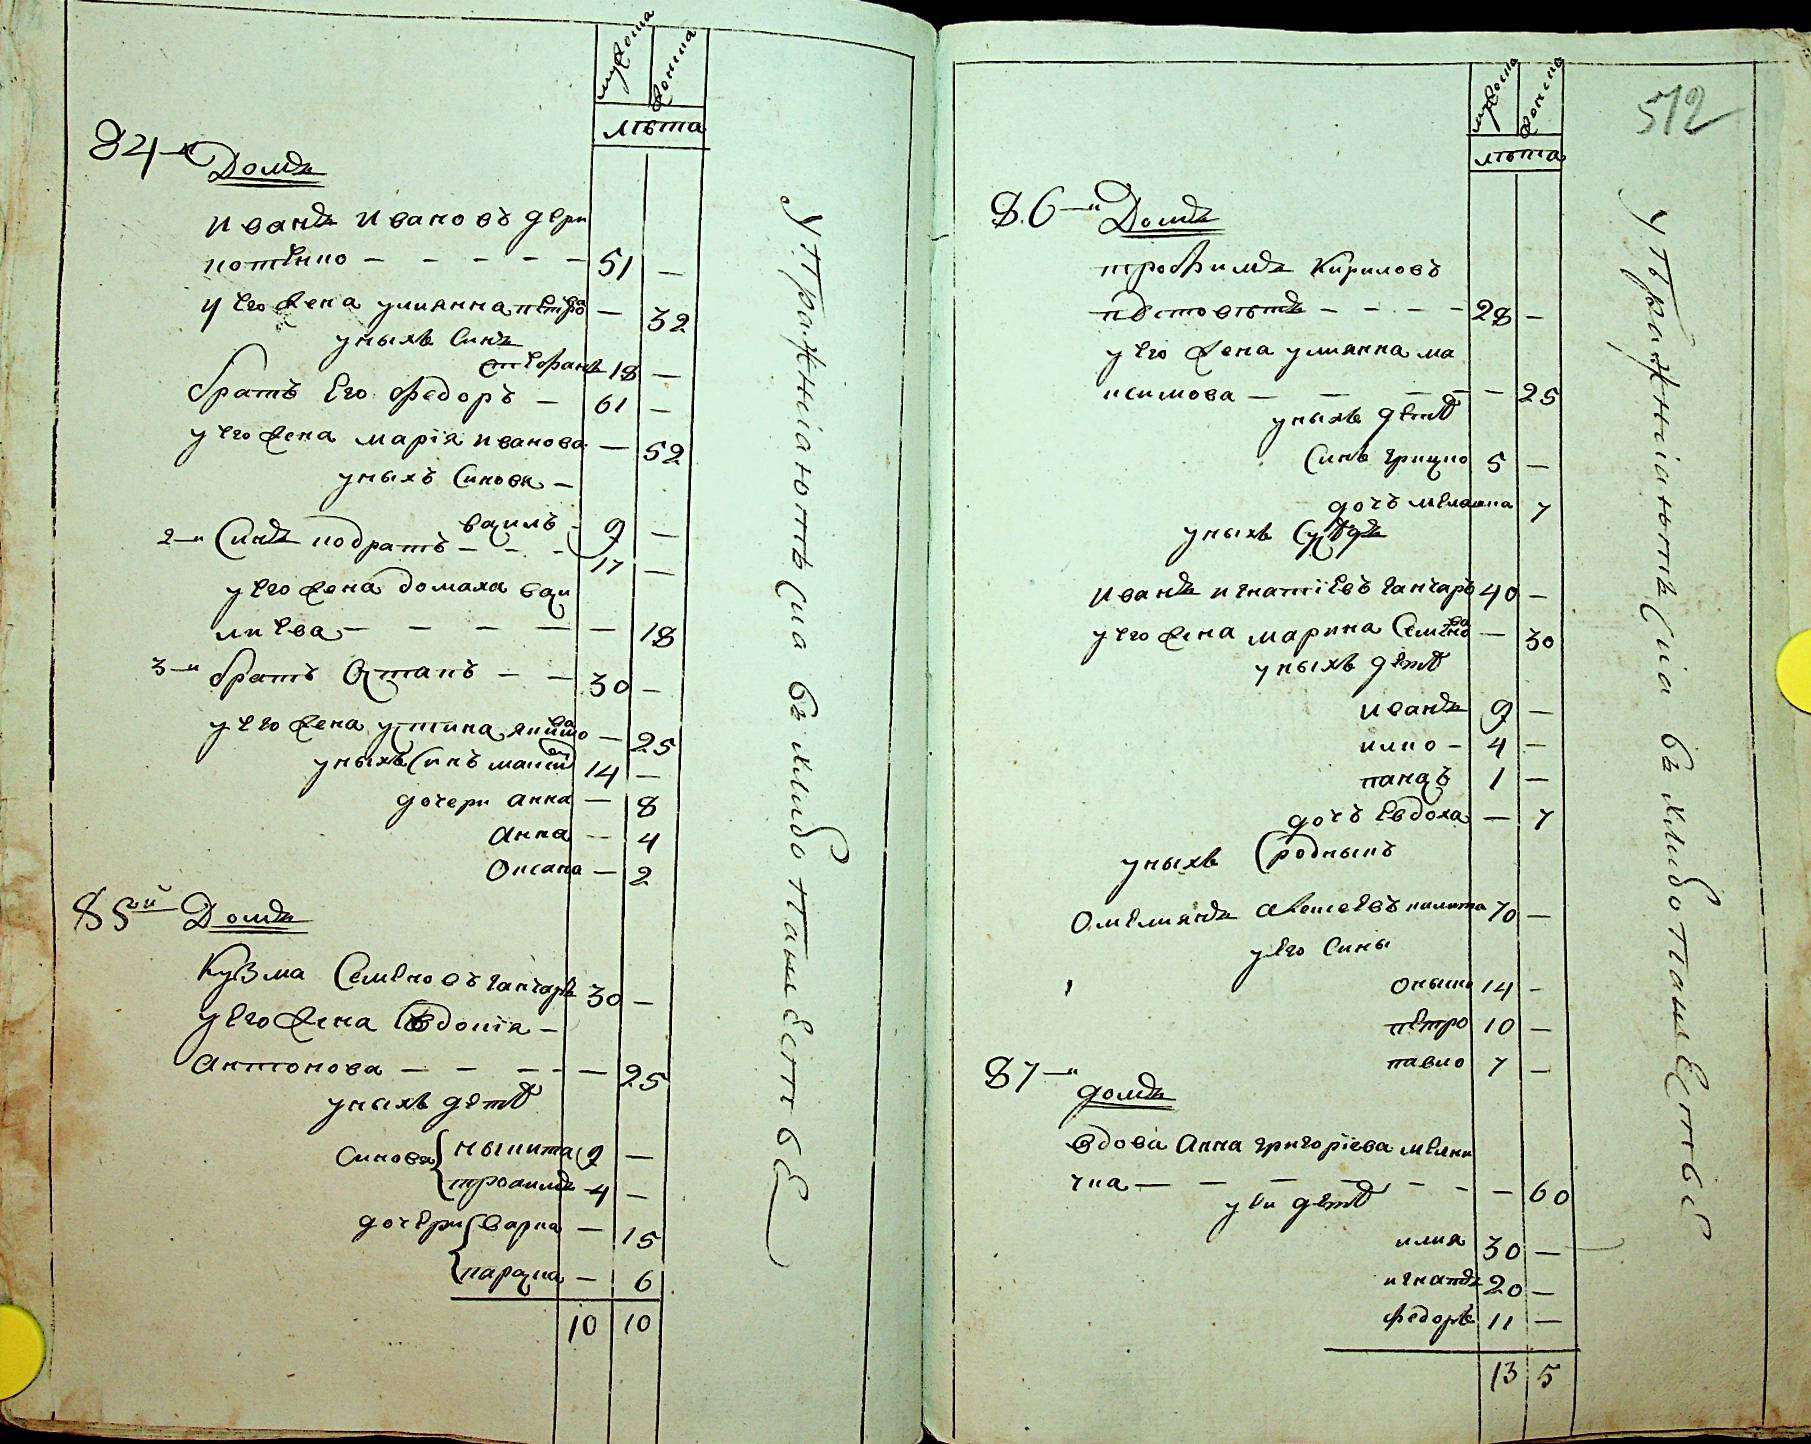 мужеска
женска
лѣта
84-й Домъ
Иванъ Ивановъ дери
потѣпко — — — — — 51 —
у его жена улиянна петрова — 32
уныхъ Синъ
стефанъ 18 —
братъ Его Федоръ — 61 —
у его жена марія иванова — 52
уныхъ Синове —
василь — 9 —
2-й Синъ кодратъ — — — 17 —
у его жена домаха васи
лиева — — — — — 18
3-й братъ Остапъ — — 30 —
у его жена устина якимова — 25
уныхъ Синъ матвій 14 —
дочери анна — 8
Анна — 4
Оксана — 2
85-ый Домъ
Кузма Семеновъ ганчаръ 30 —
у Его жена Евдокія —
антонова — — — — — 25
уныхъ дѣти
Синове никита 9 —
трохимъ 4 —
дочери варка — 15
параска — 6
10 10
упражніаютъсиа въ хлибопашествѣ
512
мужеска
женска
лѣта
86-й Домъ
трофимъ Кириловъ
— — — — 28 —
у его жена улиянна ма
ксимова — — — — — 25
уныхъ дѣти
Синъ грицко 5 —
дочъ меланка 7
уныхъ Сусѣдъ
Иванъ игнатіевъ ганчаръ 40 —
у его жена марина Семенова — 30
уныхъ дѣти
иванъ 9 —
илко — 4 —
панасъ 1 —
дочъ Евдоха — 7
уныхъ Сродныкъ
Омелиянъ алексѣевъ 70 —
у Его Сины
оныско 14 —
петро 10 —
павло 7 —
87-й
домъ
вдова Анна григоріева мелни
чка — — — — — — — 60
у ей дѣти
илия 30 —
игнатъ 20 —
федоръ 11 —
13 5
упражніаютъсиа въ хлибопашествѣ